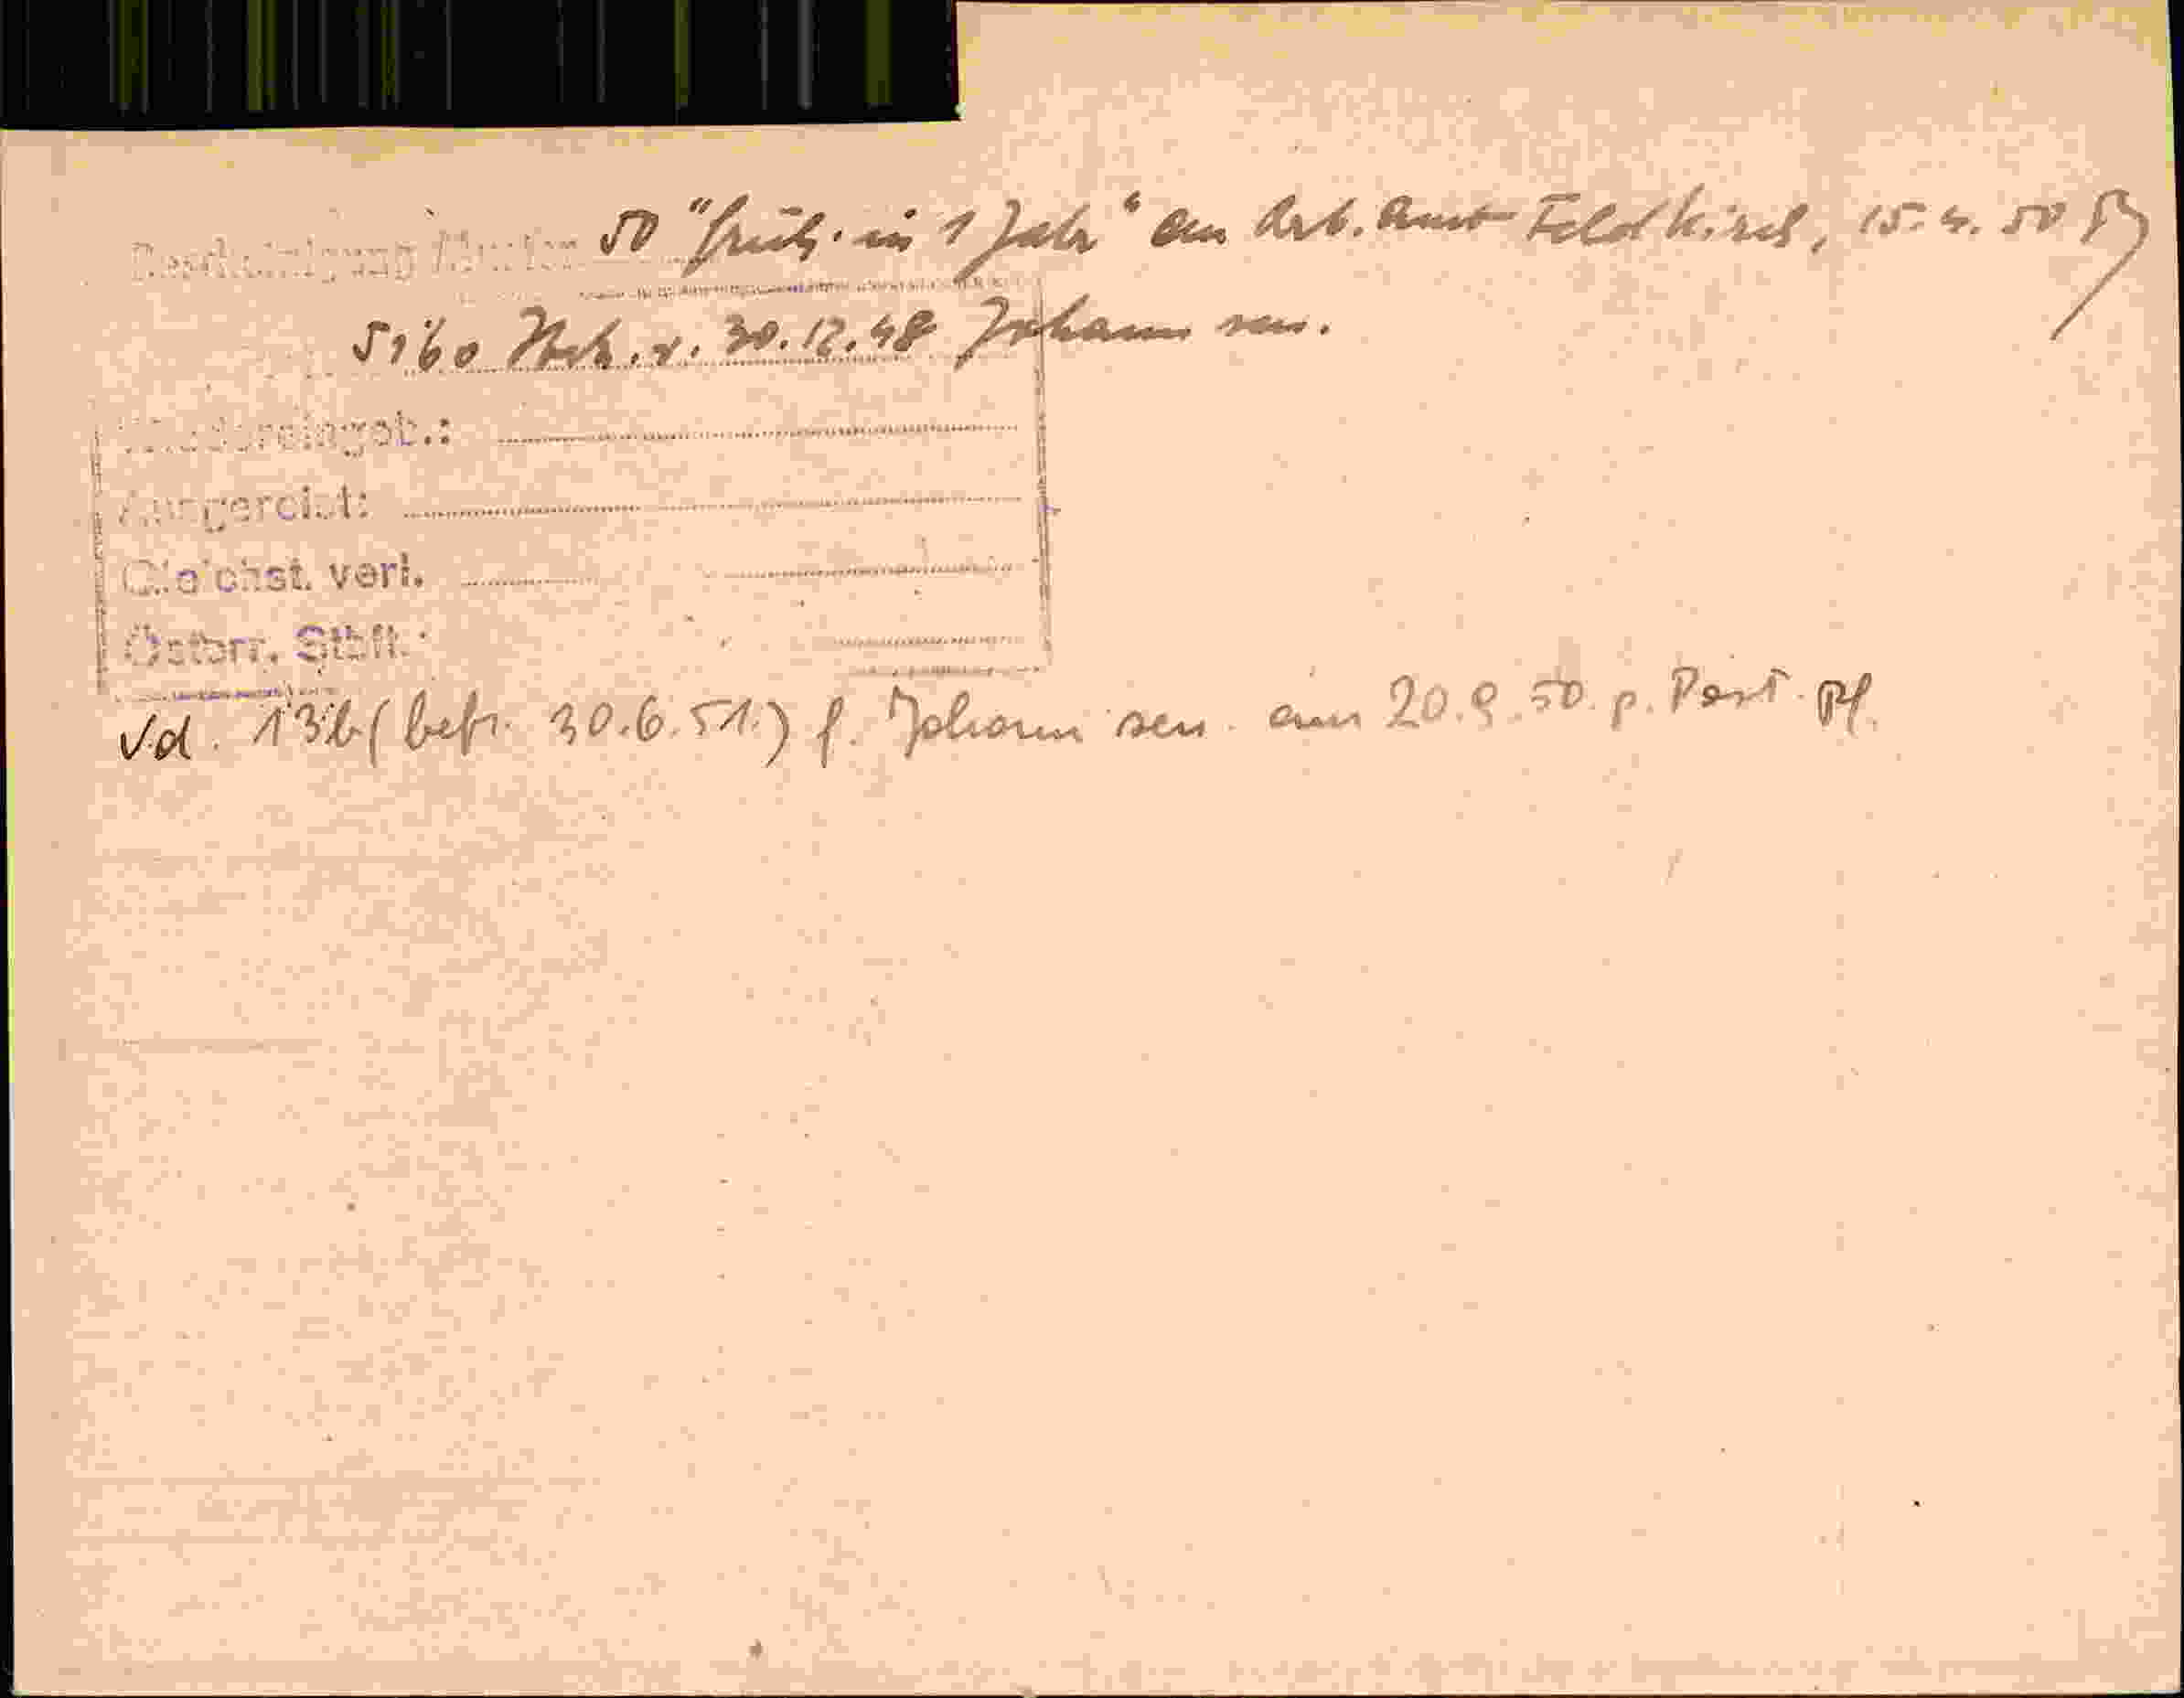 Bescheinigung Muster 50 "früh. in 1 Jahr" an Arb. Amt Feldkirch, 15.4.50
5160 v. 30.12.48 Johann sen.
Wiedereingeb.:
Ausgereist:
Gleichst. verl.
Österr. Stbft.:
Vd. 13b (befr. 30.6.51.) f. Johann sen. am 20.9.50. p. Post. Pf.